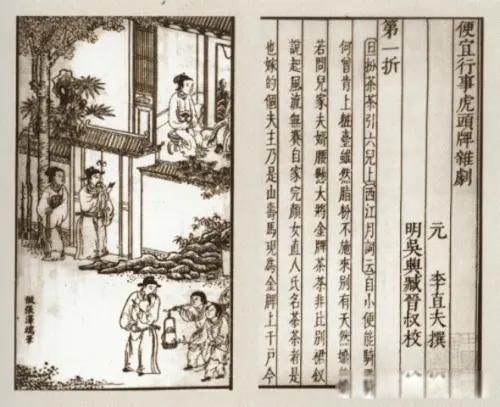 便宜行事虎頭牌雜劇
元 李直夫撰
明吳興臧晉叔校
第一折
旦扮茶茶引六兒上西江月詞云自小便能騎
何曾肯上粧臺雖然脂粉不施來別有天然嬌
若問兒家夫婿腰懸大將金牌茶茶非比別裙釵
說起風流無賽自家完顏女直人氏名茶茶者是
也嫁的個夫主乃是山壽馬現為金牌上千戶今
倣張澤端筆